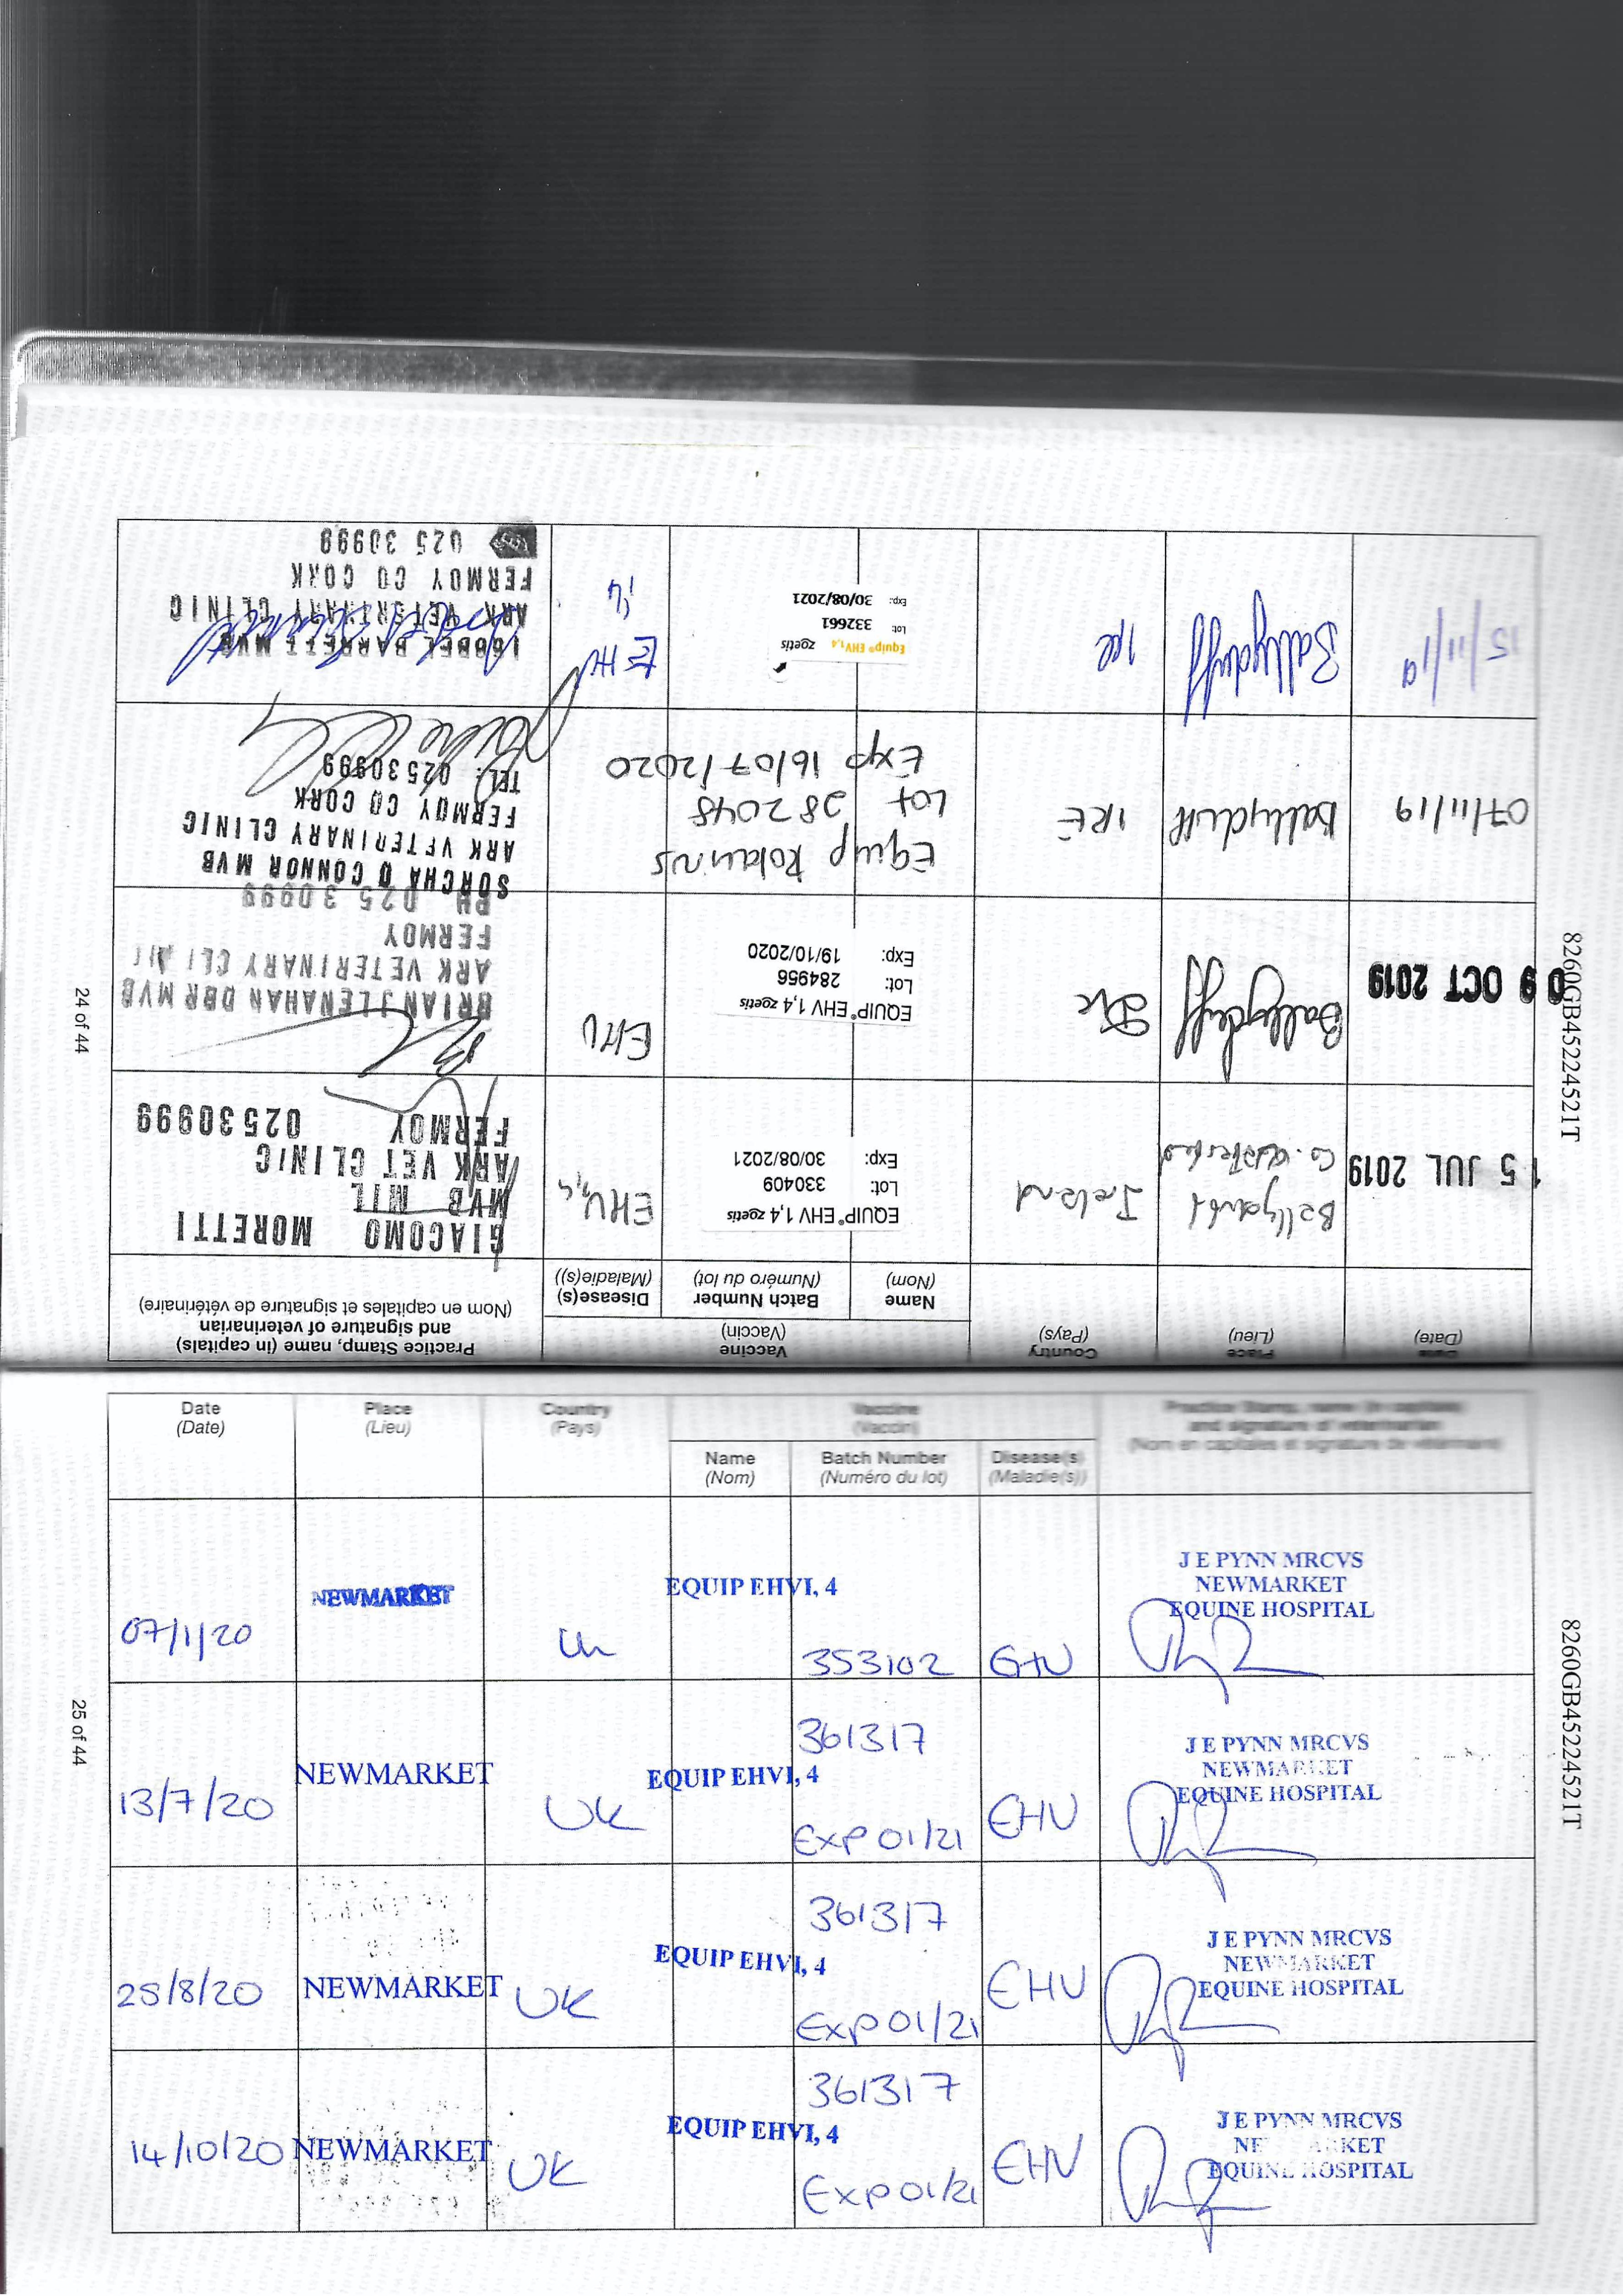 24 of 44
8260GB45224521T
Date
(Date)
Place
(Lieu)
Country
(Pays)
Vaccine
(Vaccin)
Name
(Nom)
Batch Number
(Numéro du lot)
Disease(s)
(Maladie(s))
Practice Stamp, name (in capitals)
and signature of veterinarian
(Nom en capitales et signature de vétérinaire)
15 JUL 2019
Ballyduff
Co. Waterford
Ireland
EQUIP® EHV 1,4 zoetis
Lot: 330409
Exp: 30/08/2021
EHV 1,4
GIACOMO MORETTI
MVB MIL
ARK VET CLINIC
FERMOY 02530999
09 OCT 2019
Ballyduff
IRE
EQUIP® EHV 1,4 zoetis
Lot: 284956
Exp: 19/10/2020
EHV
BRIAN J LENAHAN DBR MVB
ARK VETERINARY CLINIC
FERMOY
PH 025 30999
07/11/19
Ballyduff
IRE
Equip Rotavirus
Lot 282048
Exp 16/07/2020
SORCHA O CONNOR MVB
ARK VETERINARY CLINIC
FERMOY CO CORK
TEL: 02530999
15/11/19
Ballyduff
Ire
Equip® EHV 1,4 zoetis
Lot: 332661
Exp: 30/08/2021
EHV
1,4
ISOBEL BARRETT MVB
ARK VETERINARY CLINIC
FERMOY CO CORK
025 30999
Date
(Date)
Place
(Lieu)
Country
(Pays)
Vaccine
(Vaccin)
Name
(Nom)
Batch Number
(Numéro du lot)
Disease(s)
(Maladie(s))
Practice Stamp, name (in capitals)
and signature of veterinarian
(Nom en capitales et signature de vétérinaire)
07/1/20
NEWMARKET
UK
EQUIP EHVI, 4
353102
EHV
J E PYNN MRCVS
NEWMARKET
EQUINE HOSPITAL
13/7/20
NEWMARKET
UK
EQUIP EHVI, 4
361317
Exp 01/21
EHV
J E PYNN MRCVS
NEWMARKET
EQUINE HOSPITAL
25/8/20
NEWMARKET
UK
EQUIP EHVI, 4
361317
Exp 01/21
EHV
J E PYNN MRCVS
NEWMARKET
EQUINE HOSPITAL
14/10/20
NEWMARKET
UK
EQUIP EHVI, 4
361317
Exp 01/21
EHV
J E PYNN MRCVS
NEWMARKET
EQUINE HOSPITAL
25 of 44
8260GB45224521T